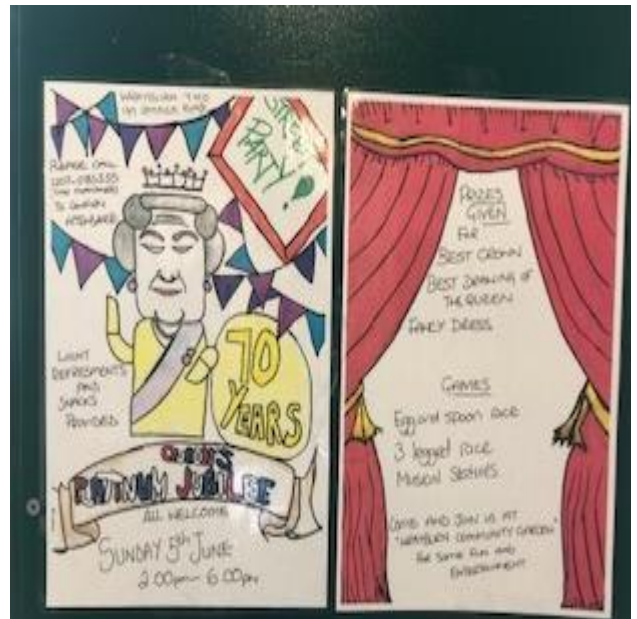 STREET
PARTY!
PLEASE CALL
TO CONFIRM
ATTENDANCE
70
YEARS
LIGHT
REFRESMENTS
AND
SNACKS
PROVIDED
QUEEN'S
PLATINUM JUBILEE
ALL WELCOME
SUNDAY 5TH JUNE
2.00pm - 6.00pm
PRIZES
GIVEN
FOR
BEST CROWN
BEST DRAWING OF
THE QUEEN
FANCY DRESS
GAMES
Egg and spoon race
3 legged race
MUSICAL STATUES
COME AND JOIN US AT
COMMUNITY GARDEN"
FOR SOME FUN AND
ENTERTAINMENT